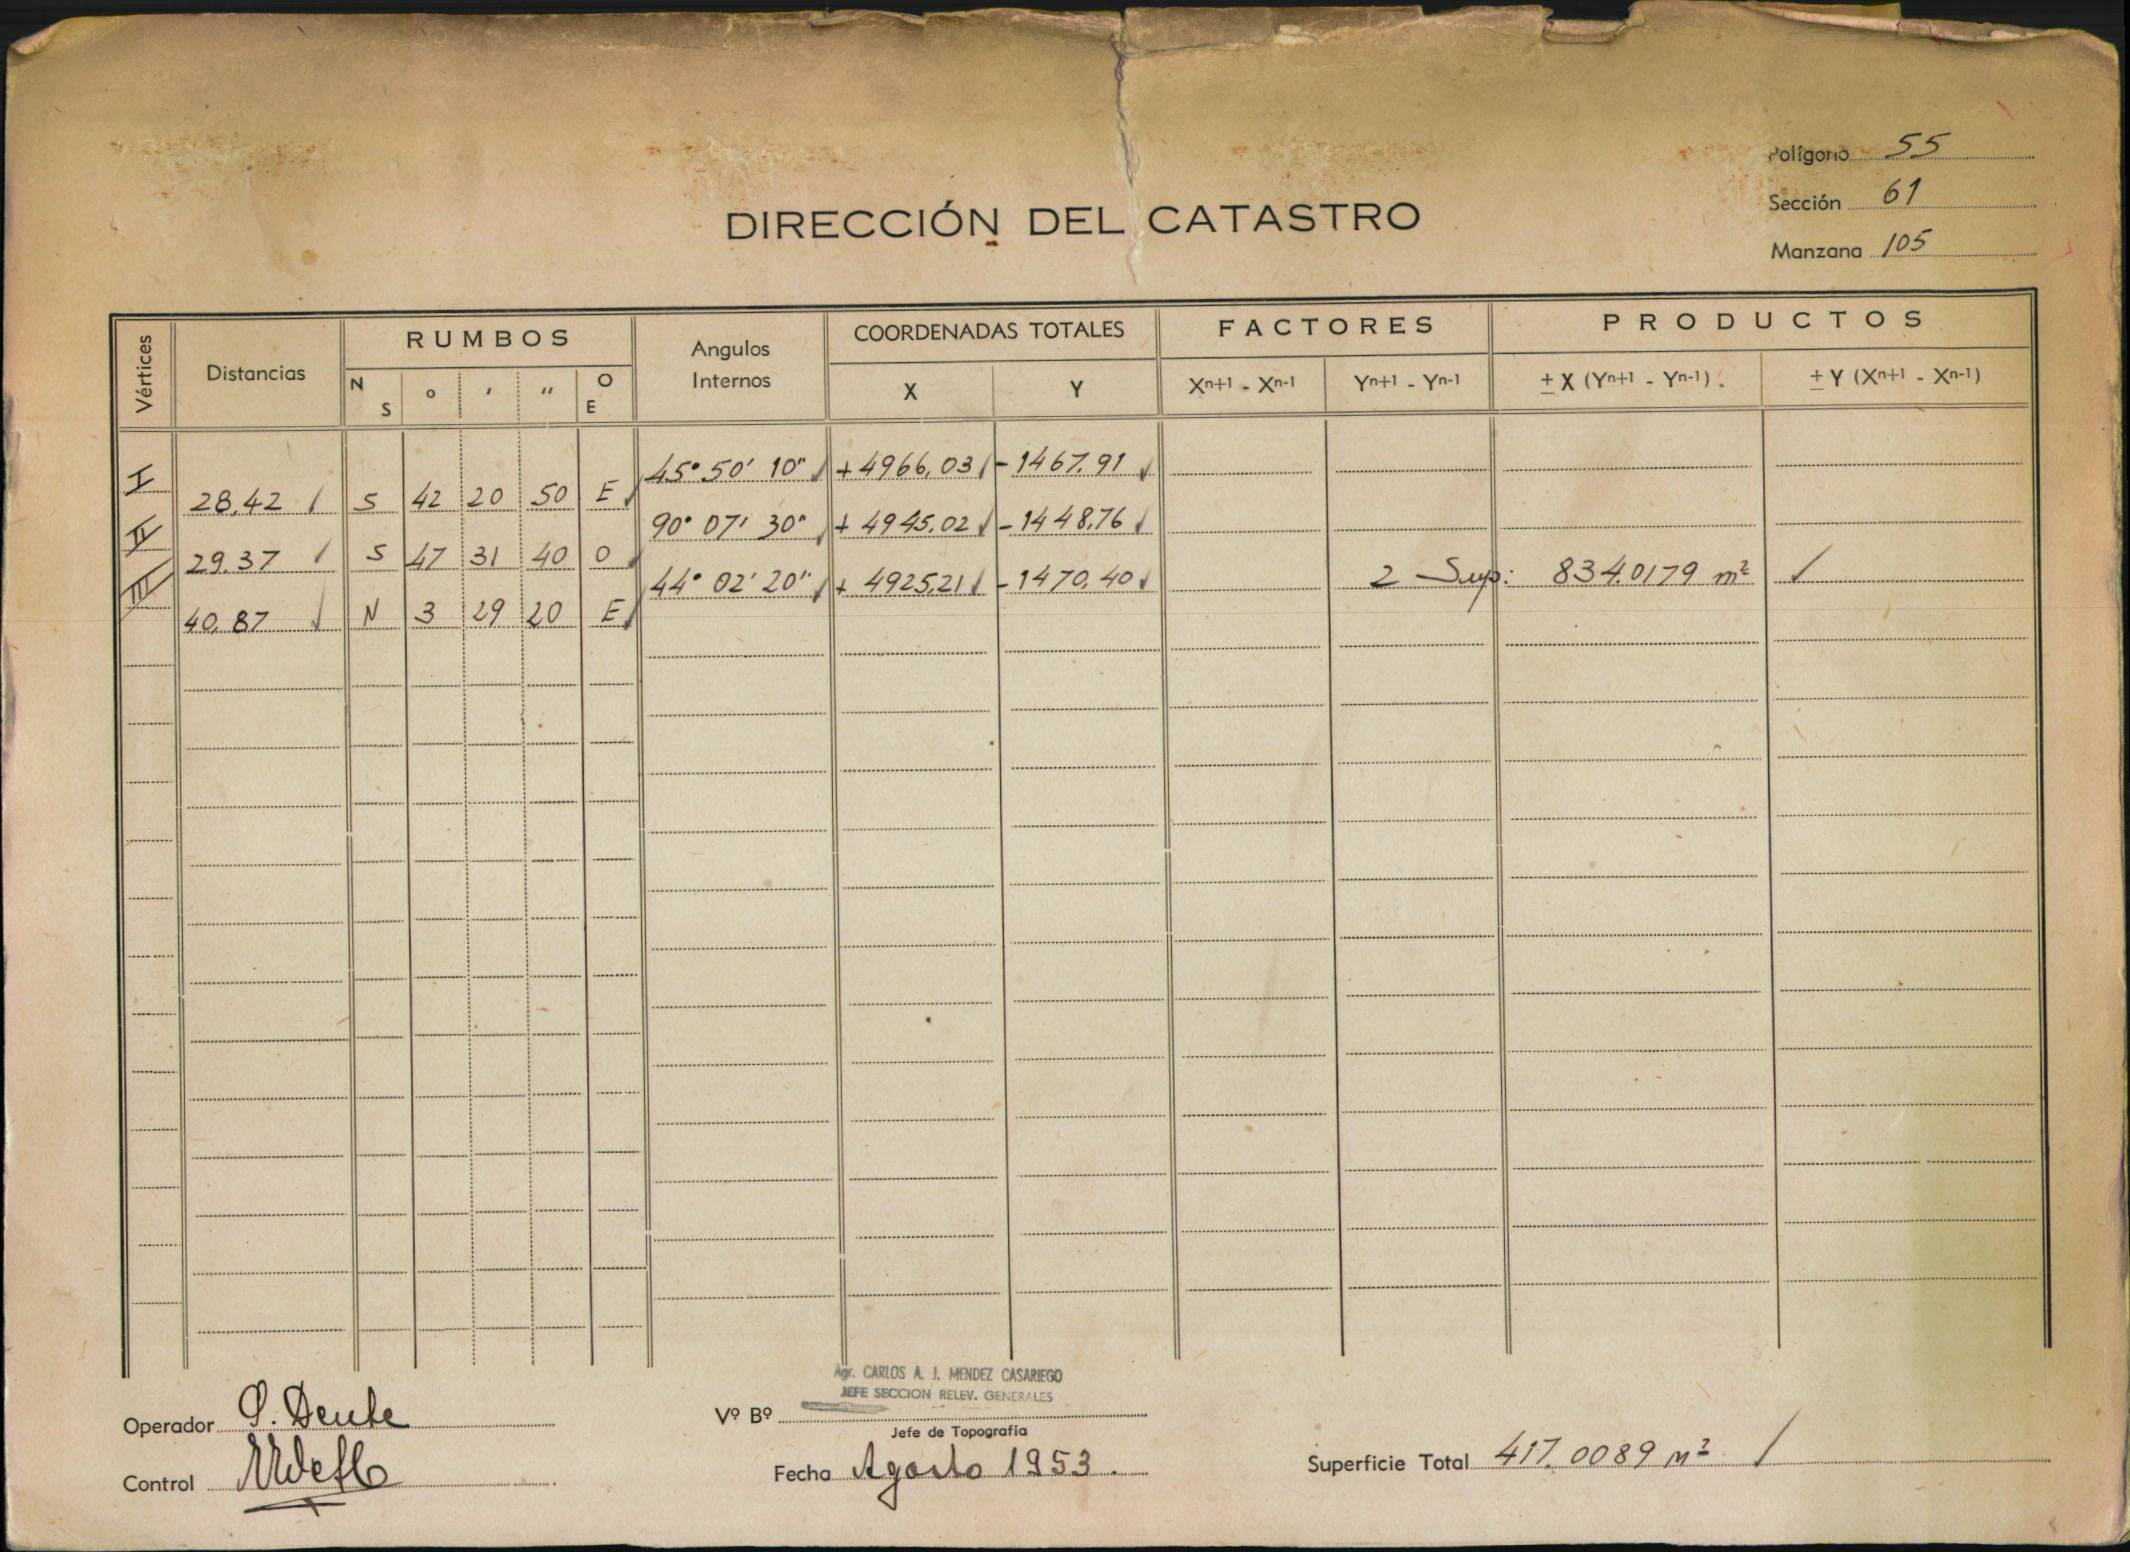 Polígono 55
Sección 61
DIRECCIÓN DEL CATASTRO
Manzana 105
Vértices
Distancias
RUMBOS
N S ° ' " O E
Angulos Internos
COORDENADAS TOTALES
X Y
FACTORES
Xn+1 - Xn-1 Yn+1 - Yn-1
PRODUCTOS
± X (Yn+1 - Yn-1). ± Y (Xn+1 - Xn-1)
I 45° 50' 10" +4966,03 -1467,91
28,42 S 42 20 50 E
II 90° 07' 30" +4945,02 -1448,76
29,37 S 47 31 40 O
III 44° 02' 20" +4925,21 -1470,40 2 Sup: 834.0179 m²
40,87 N 3 29 20 E
Agr. CARLOS A. J. MENDEZ CASARIEGO
JEFE SECCION RELEV. GENERALES
Operador
Vº Bº
Jefe de Topografía
Control
Fecha Agosto 1953.
Superficie Total 417.0089 m²